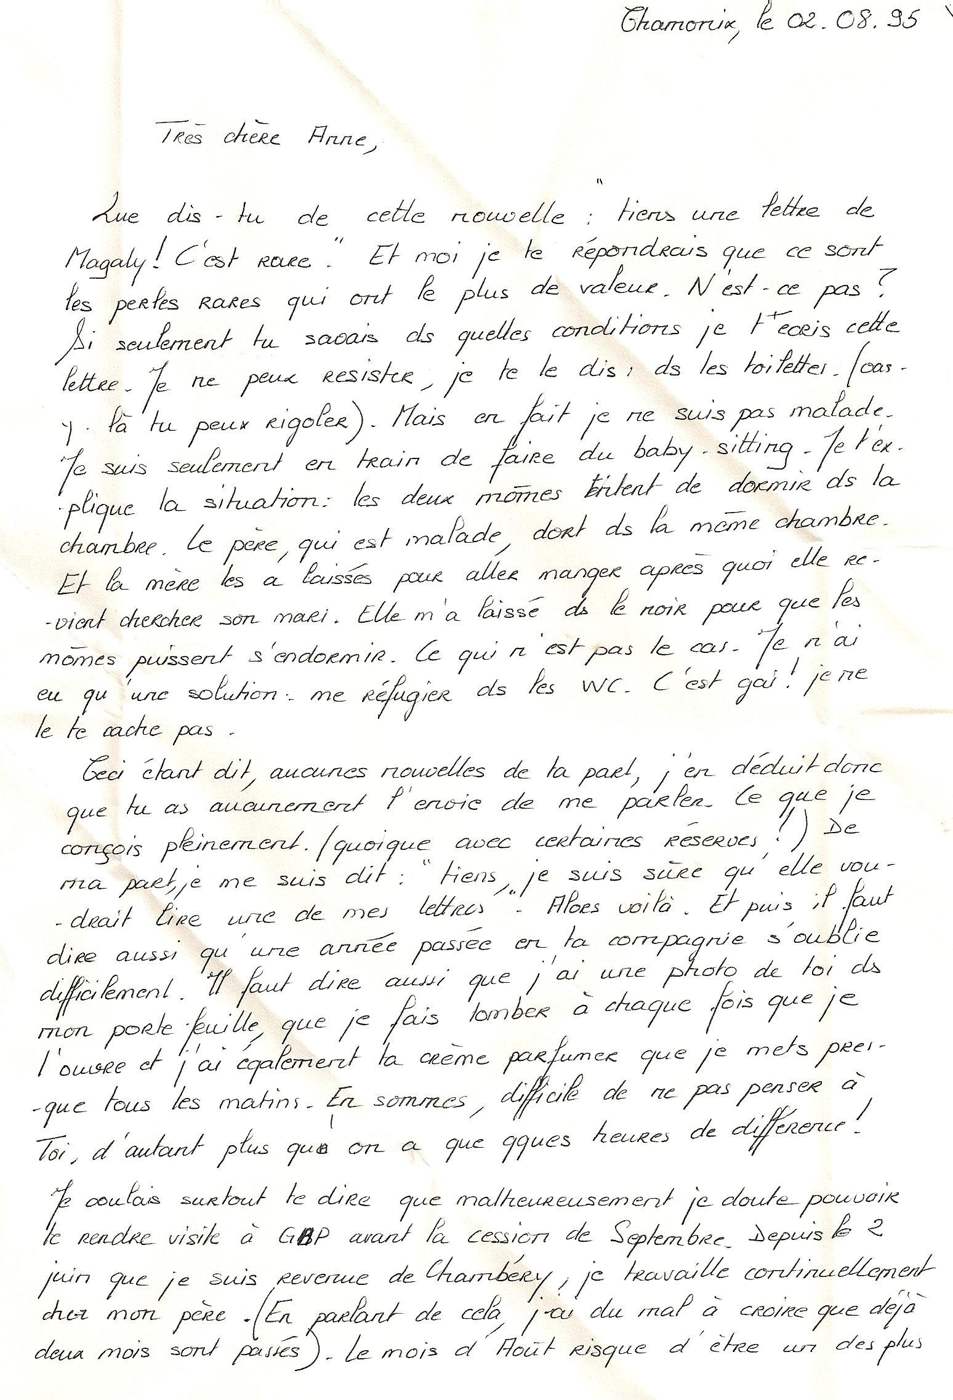 Chamonix, le 02.08.95
Très chère Anne,
Que dis-tu de cette nouvelle : "tiens une lettre de
Magaly! C'est rare." Et moi je te répondrais que ce sont
les perles rares qui ont le plus de valeur. N'est-ce pas ?
Si seulement tu savais ds quelles conditions je t'ecris cette
lettre. Je ne peux resister, je te le dis, ds les toilettes. (vas-
y. là tu peux rigoler). Mais en fait je ne suis pas malade.
Je suis seulement en train de faire du baby-sitting. Je t'ex-
-plique la situation: les deux mômes tentent de dormir ds la
chambre. Le père, qui est malade, dort ds la même chambre.
Et la mère les a laissés pour aller manger après quoi elle re-
-vient chercher son mari. Elle m'a laissé ds le noir pour que les
mômes puissent s'endormir. Ce qui n'est pas le cas. Je n'ai
eu qu'une solution : me réfugier ds les WC. C'est gai! je ne
le te cache pas.
Ceci étant dit, aucunes nouvelles de ta part, j'en déduit donc
que tu as aucunement l'envie de me parler. Ce que je
conçois pleinement. (quoique avec certaines réserves!) De
ma part, je me suis dit : "tiens, je suis sûre qu'elle vou-
-drait lire une de mes lettres". Alors voilà. Et puis il faut
dire aussi qu'une année passée en ta compagnie s'oublie
difficilement. Il faut dire aussi que j'ai une photo de toi ds
mon porte-feuille, que je fais tomber à chaque fois que je
l'ouvre et j'ai également ta crème parfumer que je mets pres-
-que tous les matins. En sommes, difficile de ne pas penser à
Toi, d'autant plus qu'on a que qques heures de différence!
Je voulais surtout te dire que malheureusement je doute pouvoir
te rendre visite à GBP avant la cession de Septembre. Depuis le 2
juin que je suis revenue de Chambéry, je travaille continuellement
chez mon père. (En parlant de cela, j'ai du mal à croire que déjà
deux mois sont passés). Le mois d'Août risque d'être un des plus